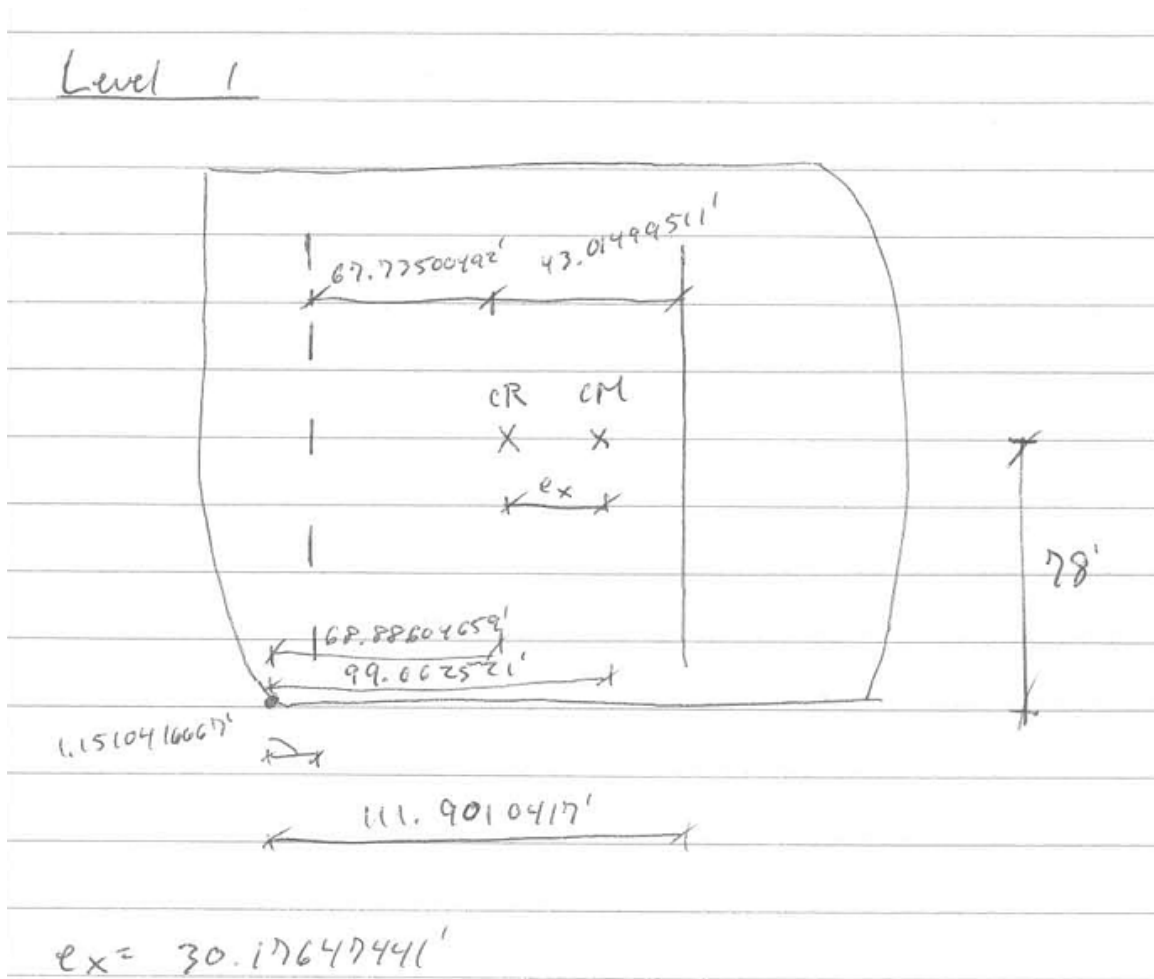 Level 1
67.73500492'
43.01499511'
CR CM
ex
78'
68.88604659'
99.062521'
1.1510416667'
111.9010417'
ex = 30.17647441'